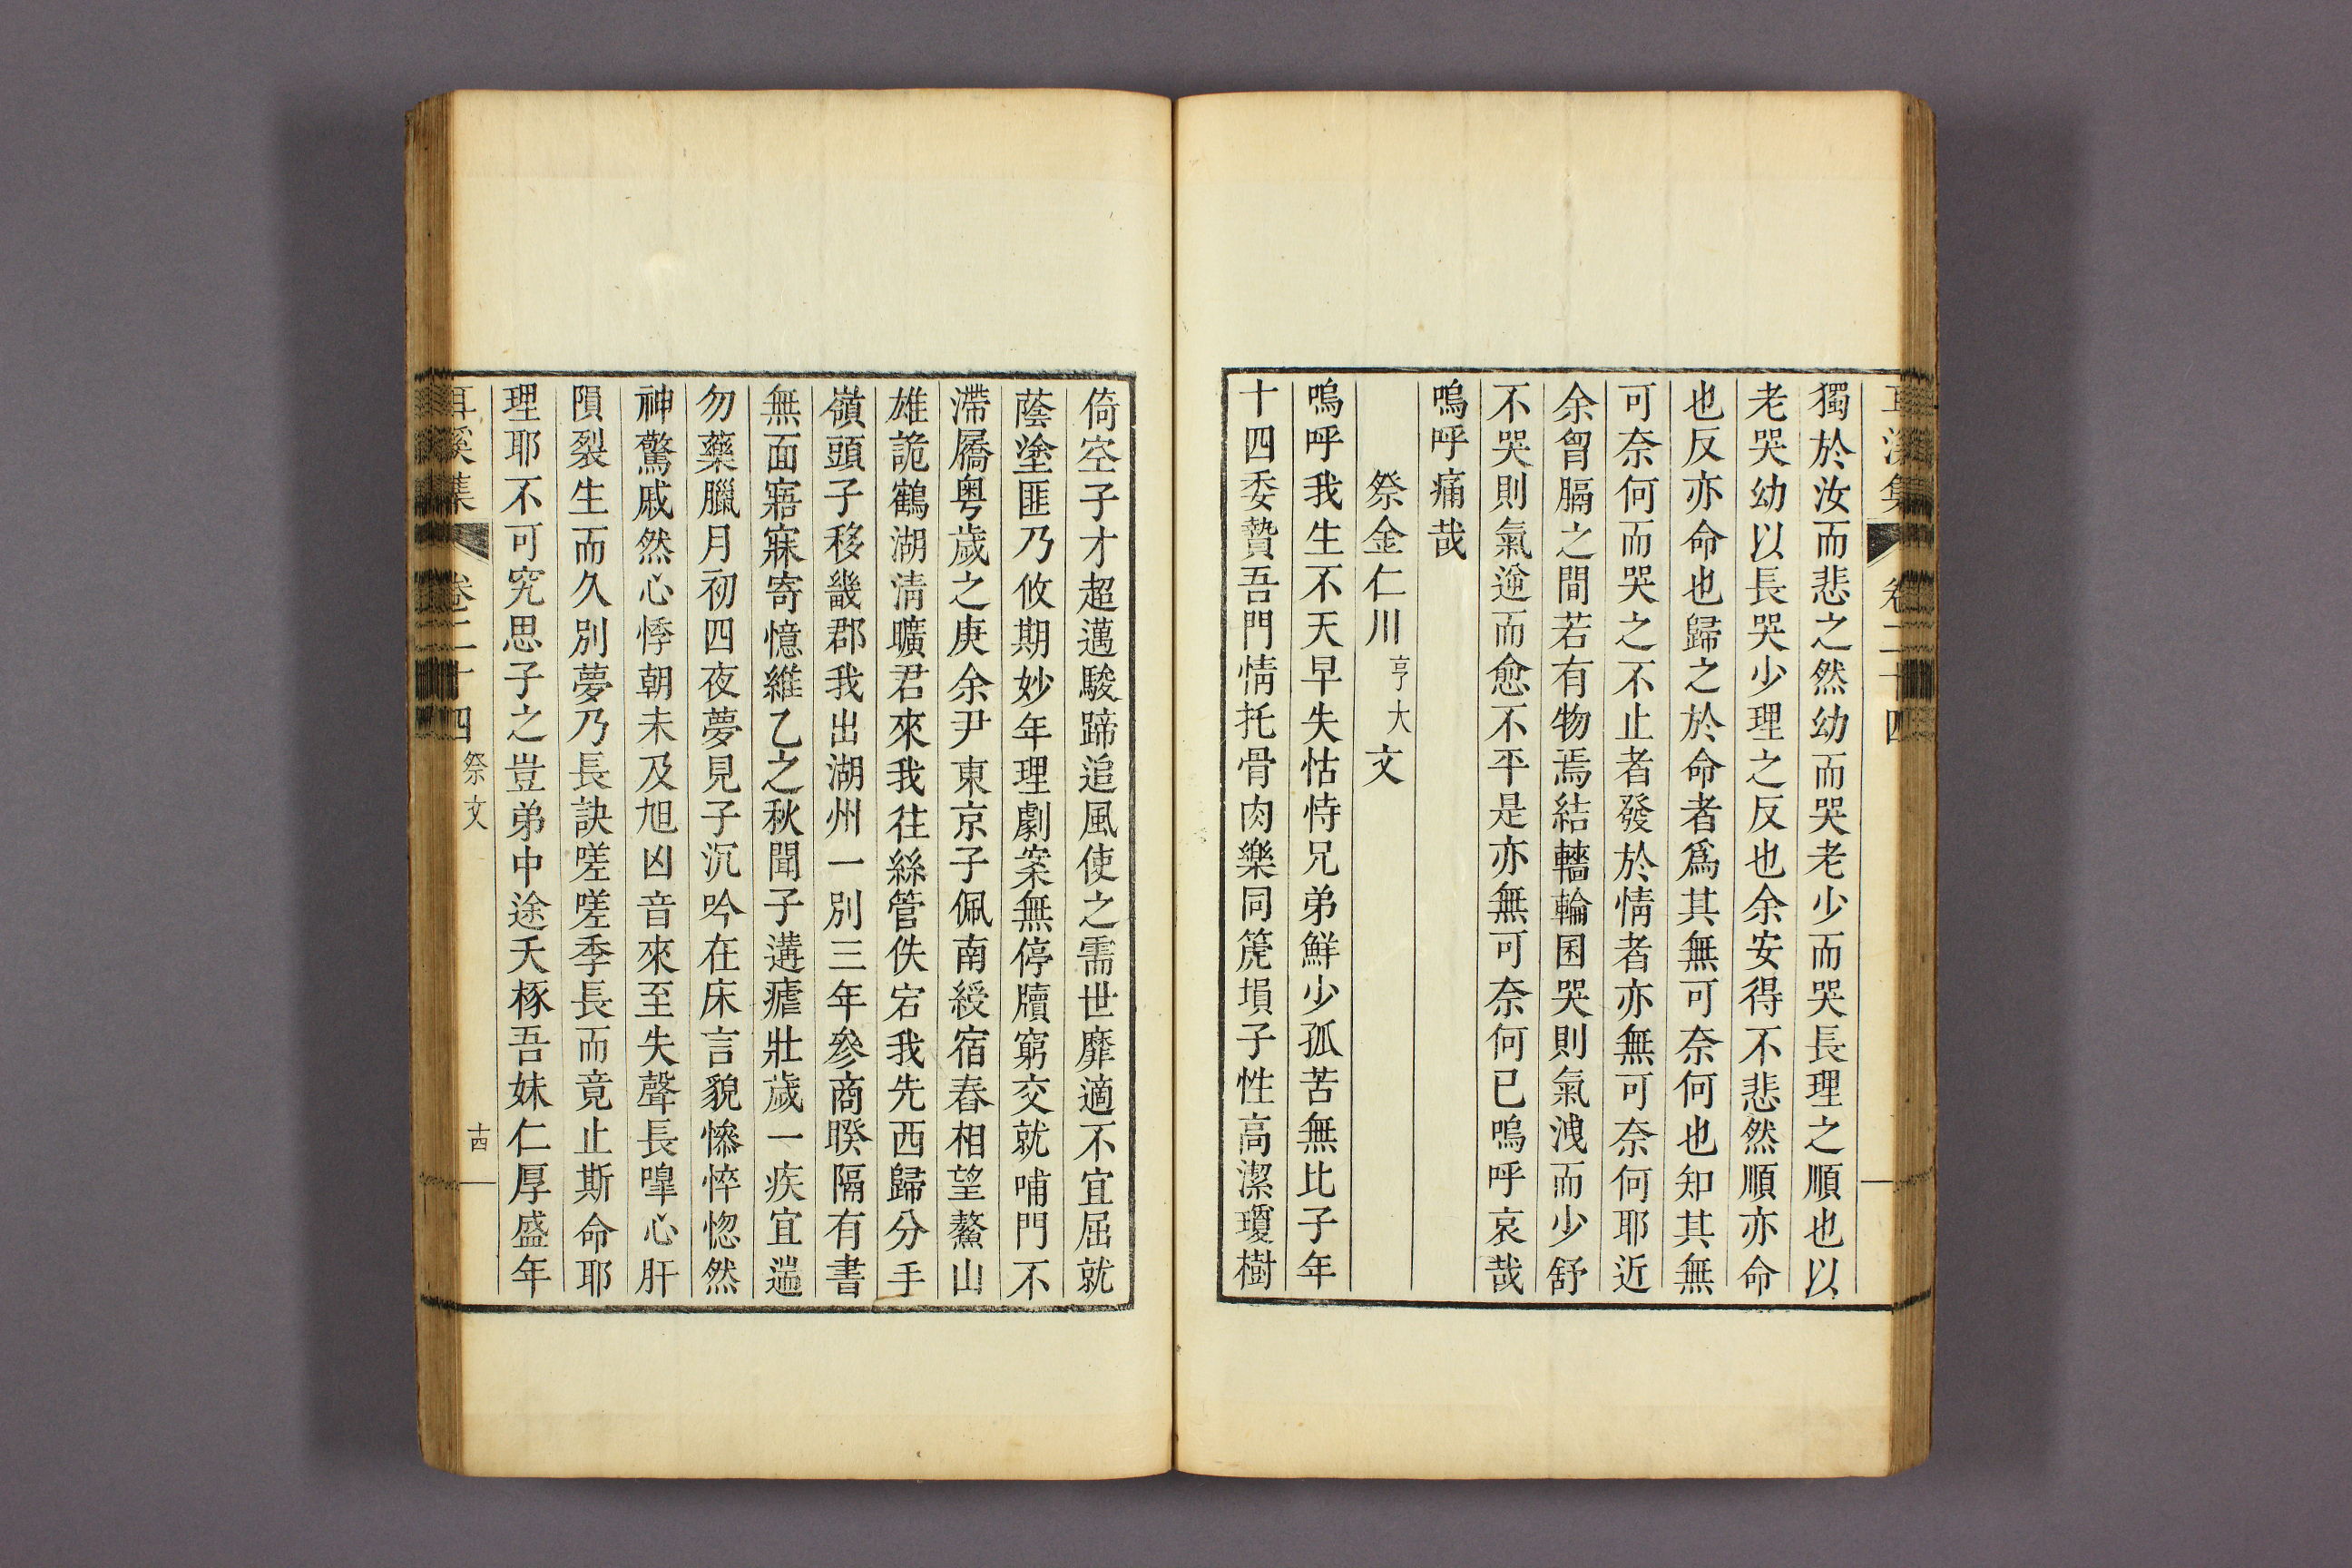 耳溪集 卷二十四
獨於汝而悲之然幼而哭老少而哭長理之順也以
老哭幼以長哭少理之反也余安得不悲然順亦命
也反亦命也歸之於命者爲其無可奈何也知其無
可奈何而哭之不止者發於情者亦無可奈何耶近
余胷膈之間若有物焉結轖輪囷哭則氣洩而少舒
不哭則氣逆而愈不平是亦無可奈何已嗚呼哀哉
嗚呼痛哉
祭金仁川亨大文
嗚呼我生不天早失怙恃兄弟鮮少孤苦無比子年
十四委贄吾門情托骨肉樂同篪塤子性高潔瓊樹
倚空子才超邁駿蹄追風使之需世靡適不宜屈就
蔭塗匪乃攸期妙年理劇案無停牘窮交就哺門不
滯屩粤歲之庚余尹東京子佩南綬宿舂相望鰲山
雄詭鶴湖清曠君來我往絲管佚宕我先西歸分手
嶺頭子移畿郡我出湖州一別三年參商暌隔有書
無面寤寐寄憶維乙之秋聞子遘瘧壯歲一疾宜遄
勿藥臘月初四夜夢見子沉吟在床言貌慘悴惚然
神驚戚然心悸朝未及旭凶音來至失聲長嘷心肝
隕裂生而久別夢乃長訣嗟嗟季長而竟止斯命耶
理耶不可究思子之豈弟中途夭椓吾妹仁厚盛年
耳溪集 卷二十四 祭文 十四